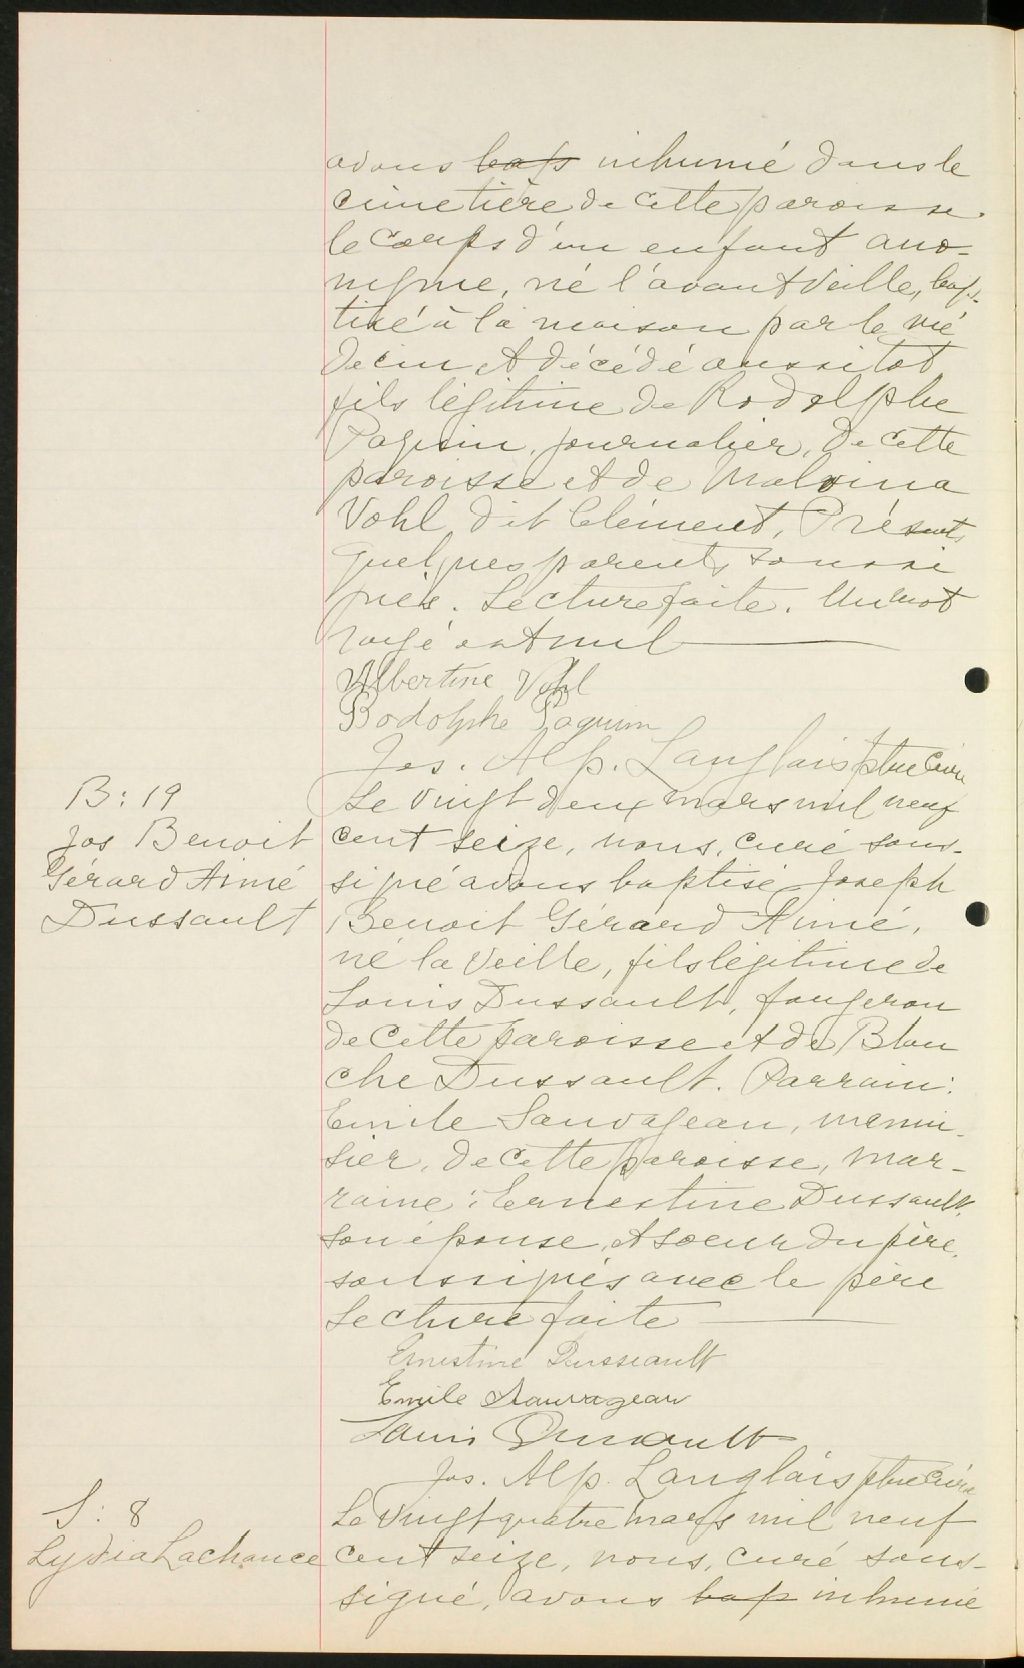 avons bap inhumé dans le
cimetière de cette paroisse
le corps d'un enfant ano-
nyme, né l'avant veille, bap-
tisé à la maison par le mé
decin et décédé aussitot
fils légitime de Rodolphe
Paquin, journalier, de cette
paroisse et de Malvina
Vohl dit Clément, Présents
quelques parents soussi
gnés. Lecture faite. Un mot
rayé est nul
Albertine Vohl
Rodolphe Paquin
Jos. Alp. Langlais ptre Curé
B: 19
Jos Benoit
Gérard Aimé
Dussault
Le vingt deux mars mil neuf
cent seize, nous, curé sous-
signé avons baptisé Joseph
Benoit Gérard Aimé,
né la veille, fils légitime de
Louis Dussault, forgeron
de cette paroisse et de Blan
che Dussault. Parrain:
Emile Sauvageau, menui-
sier, de cette paroisse, mar-
raine: Ernestine Dussault,
son épouse, et soeur du père,
soussignés avec le père
Lecture faite
Ernestine Dusseault
Emile Sauvageau
Louis Dussault
Jos. Alp. Langlais ptre Curé
S: 8
Lydia Lachance
Le vingt quatre mars mil neuf
cent seize, nous, curé sous-
signé, avons bap inhumé